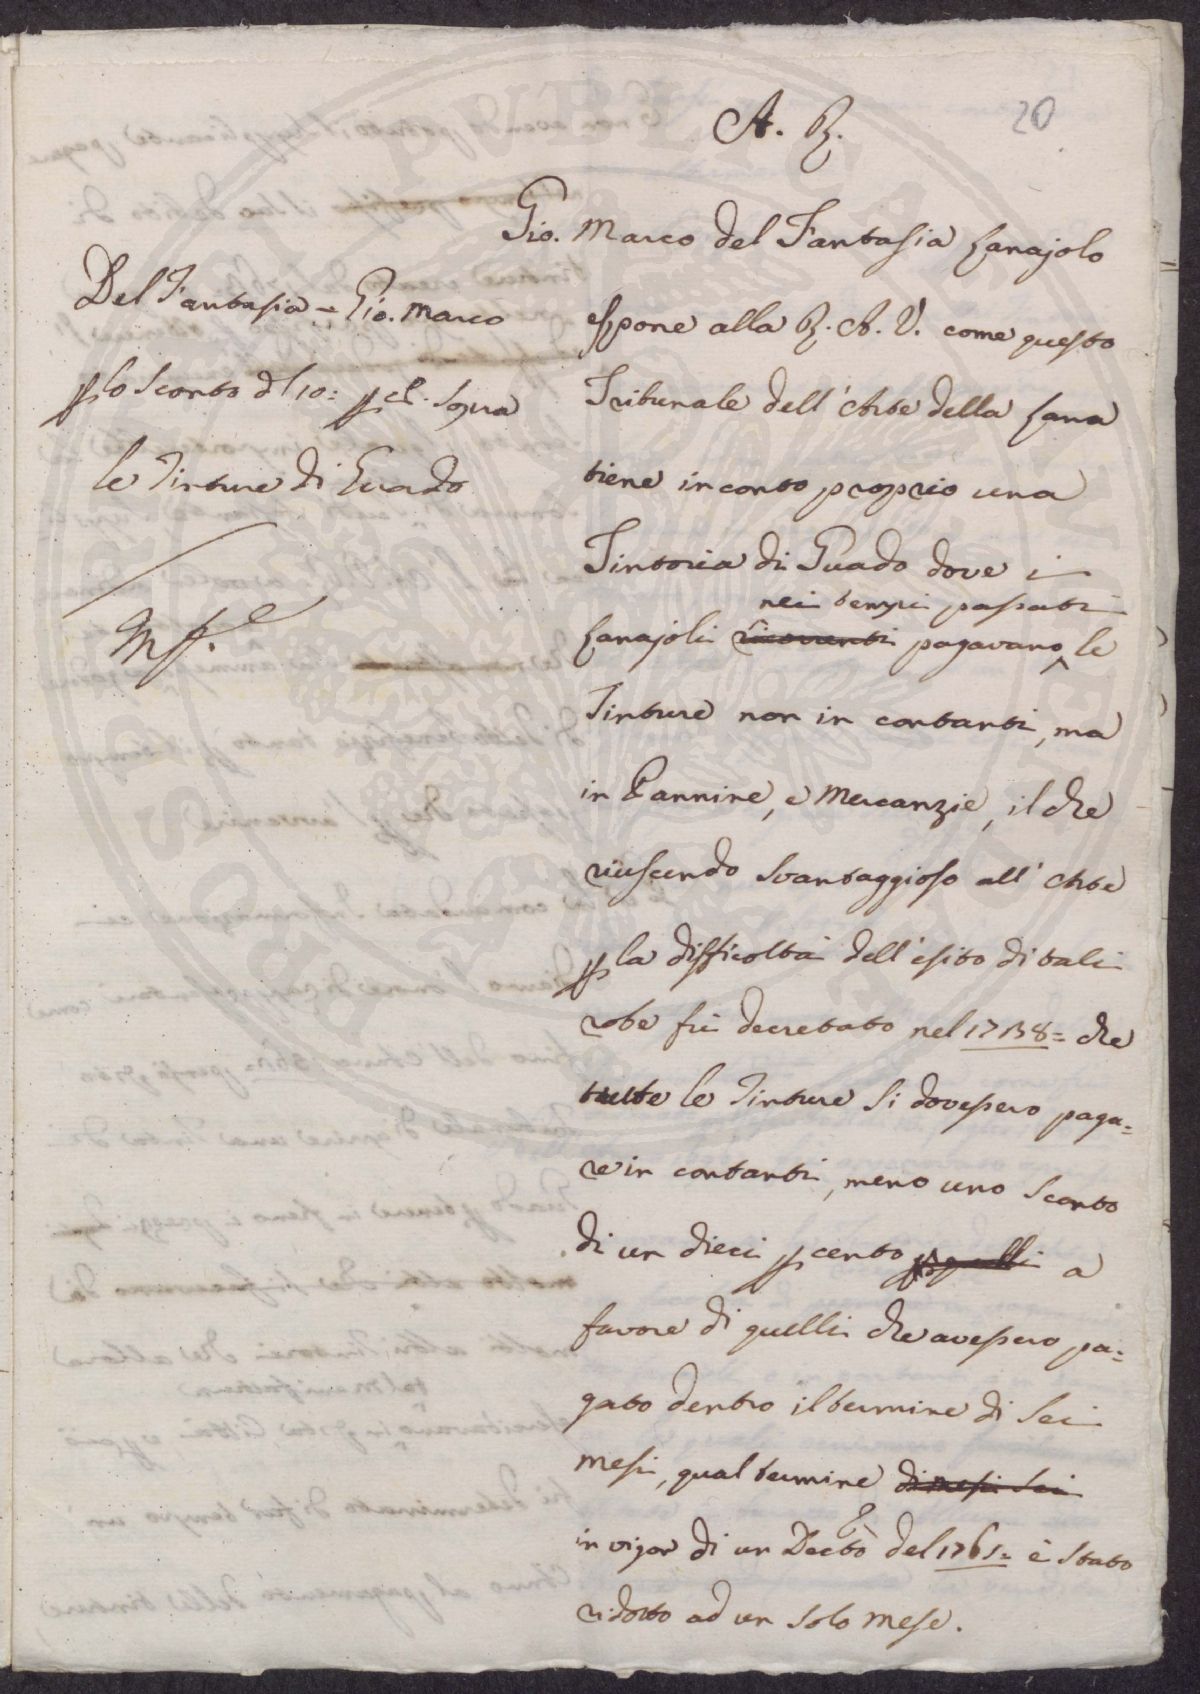 20
A. R.
Del Fantasia = Gio. Marco
p lo Sconto dl 10: p cto. sopra
le Tinture di Guado
Gio. Marco del Fantasia Lanajolo
espone alla R. A. V. come questo
Tribunale dell'Arte della Lana
tiene in conto proprio una
Tintoria di Guado dove i
nei tempi passati
Lanajoli ricorrenti pagavano ‸ le
Tinture non in contanti, ma
in Pannine, e Mercanzie, il che
riuscendo svantaggioso all'Arte
p la difficoltà dell'esito di tali
robe fù decretato nel 1738= che
tutte le Tinture si dovessero paga=
re in contanti, meno uno Sconto
di un dieci p cento p quelli a
favore di quelli che avessero pa=
gato dentro il termine di Sei
mesi, qual termine di mesi Sei
in vigor di un Decto del 1761= è stato
ridotto ad un solo mese.